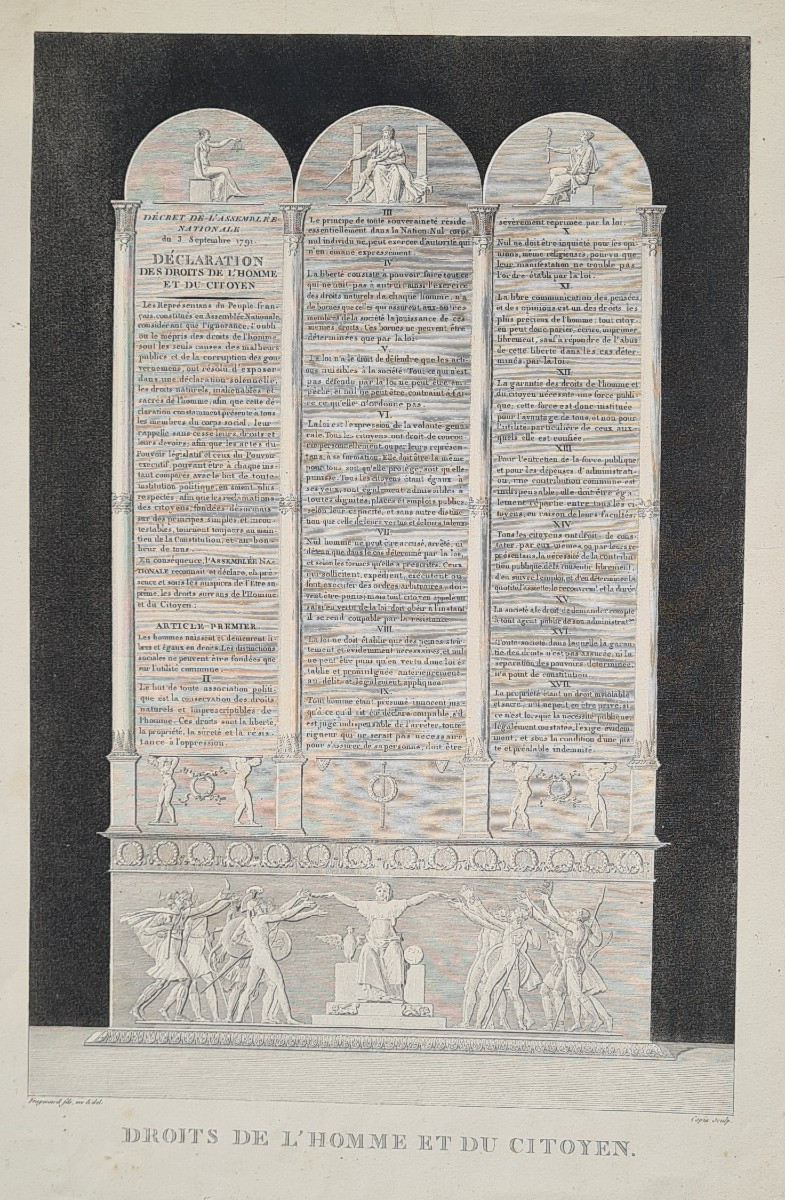 DÉCRET DE L'ASSEMBLÉE
NATIONALE
du 3 Septembre 1791.
DÉCLARATION
DES DROITS DE L'HOMME
ET DU CITOYEN
Les Représentans du Peuple fran-
çais, constitués en Assemblée Nationale,
considérant que l'ignorance, l'oubli
ou le mépris des droits de l'homme
sont les seuls causes des malheurs
publics et de la corruption des gou-
vernemens, ont résolu d'exposer
dans une déclaration solennelle,
les droits naturels, inaliénables et
sacrés de l'homme; afin que cette dé-
claration constamment présente à tous
les membres du corps social, leur
rappelle sans cesse leurs droits et
leurs devoirs; afin que les actes du
Pouvoir législatif et ceux du Pouvoir
exécutif, pouvant être à chaque ins-
tant comparés avec le but de toute
institution politique, en soient plus
respectés; afin que les réclamations
des citoyens, fondées désormais
sur des principes simples et incon-
testables, tournent toujours au main-
tien de la Constitution, et au bon-
heur de tous.
En conséquence, l'ASSEMBLÉE NA-
TIONALE reconnait et déclare, en pré-
sence et sous les auspices de l'Etre su-
prême, les droits suivans de l'Homme
et du Citoyen.
ARTICLE PREMIER.
Les hommes naissent et demeurent li-
bres et égaux en droits. Les distinctions
sociales ne peuvent être fondées que
sur l'utilité commune.
II
Le but de toute association politi-
que est la conservation des droits
naturels et imprescriptibles de
l'homme. Ces droits sont la liberté,
la propriété, la sureté et la résis-
tance à l'oppression.
III
Le principe de toute souveraineté réside
essentiellement dans la Nation. Nul corps,
nul individu ne peut exercer d'autorité qui
n'en émane expressément.
IV
La liberté consiste à pouvoir faire tout ce
qui ne nuit pas à autrui: ainsi l'exercice
des droits naturels de chaque homme, n'a
de bornes que celles qui assurent aux autres
membres de la société la jouissance de ces
mêmes droits. Ces bornes ne peuvent être
déterminées que par la loi.
V
La loi n'a le droit de défendre que les acti-
ons nuisibles à la société. Tout ce qui n'est
pas défendu par la loi ne peut être em-
pêché, et nul ne peut être contraint à fai-
re ce qu'elle n'ordonne pas.
VI.
La loi est l'expression de la volonté géné-
rale. Tous les citoyens ont droit de concou-
rir personnellement, ou par leurs représen-
tans, à sa formation. Elle doit être la même
pour tous, soit qu'elle protège, soit qu'elle
punisse. Tous les citoyens étant égaux à
ses yeux, sont également admissibles à
toutes dignités, places et emplois publics,
selon leur capacité, et sans autre distinc-
tion que celle de leurs vertus et de leurs talens.
VII
Nul homme ne peut être accusé, arrêté, ni
détenu que dans les cas déterminés par la loi,
et selon les formes qu'elle a prescrites. Ceux
qui sollicitent, expédient, exécutent ou
font exécuter des ordres arbitraires, doi-
vent être punis; mais tout citoyen appelé ou
saisi en vertu de la loi, doit obéir à l'instant
il se rend coupable par la résistance.
VIII
La loi ne doit établir que des peines stric-
tement et évidemment nécessaires, et nul
ne peut être puni qu'en vertu d'une loi é-
tablie et promulguée antérieurement
au délit et légalement appliquée.
IX.
Tout homme étant présumé innocent jus-
qu'à ce qu'il ait été déclaré coupable, s'il
est jugé indispensable de l'arrêter, toute
rigueur qui ne serait pas nécessaire
pour s'assurer de sa personne, doit être
sévèrement réprimée par la loi.
X
Nul ne doit être inquiété pour ses opi-
nions, même religieuses, pourvu que
leur manifestation ne trouble pas
l'ordre établi par la loi.
XI
La libre communication des pensées
et des opinions est un des droits les
plus précieux de l'homme: tout citoy-
en peut donc parler, écrire, imprimer
librement, sauf à répondre de l'abus
de cette liberté dans les cas déter-
minés par la loi.
XII
La garantie des droits de l'homme et
du citoyen nécessite une force publi-
que; cette force est donc instituée
pour l'avantage de tous, et non pour
l'utilité particulière de ceux aux-
quels elle est confiée.
XIII
Pour l'entretien de la force publique
et pour les dépenses d'administrati-
on, une contribution commune est
indispensable; elle doit être éga-
lement répartie entre tous les ci-
toyens, en raison de leurs facultés.
XIV
Tous les citoyens ont droit de cons-
tater, par eux-mêmes ou par leurs re-
présentans, la nécessité de la contribu-
tion publique, de la consentir librement,
d'en suivre l'emploi, et d'en déterminer la
quotité, l'assiette, le recouvremt. et la durée.
XV
La société a le droit de demander compte
à tout agent public de son administratn.
XVI
Toute société dans laquelle la garan-
tie des droits n'est pas assurée, ni la
séparation des pouvoirs déterminée,
n'a point de constitution.
XVII
La propriété étant un droit inviolable
et sacré, nul ne peut en être privé, si
ce n'est lorsque la nécessité publique,
légalement constatée, l'exige évidem-
ment, et sous la condition d'une jus-
te et préalable indemnité.
Fragonard fils, inv. & del.
Copia sculp.
DROITS DE L'HOMME ET DU CITOYEN.